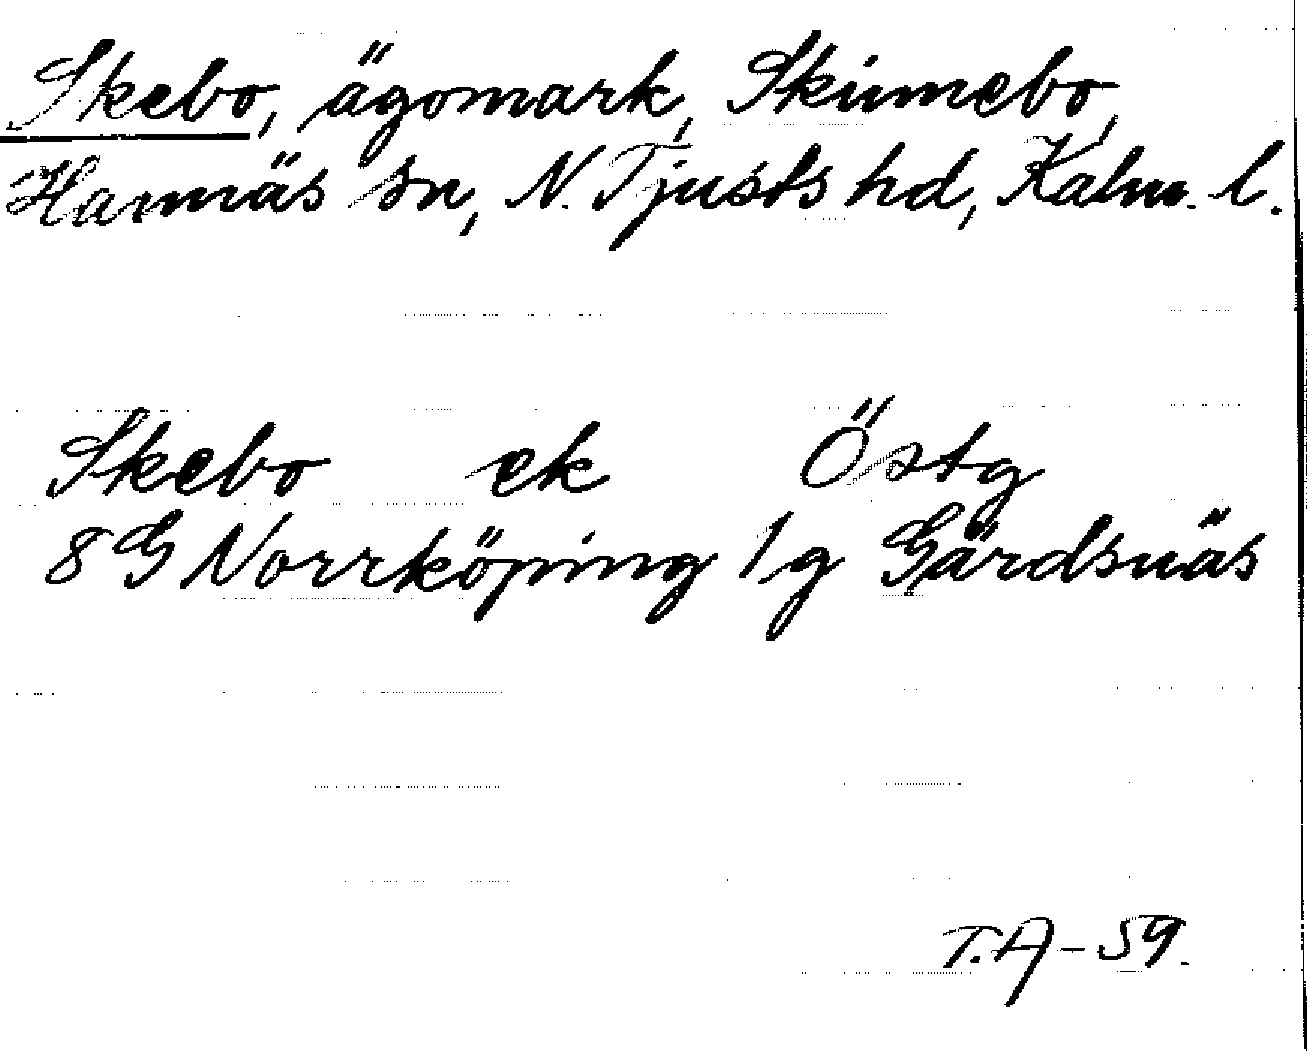 Skebo, ägomark, Skinnebo,
Hannäs sn, N. Tjusts hd, Kalm. l.
Skebo ek Östg
8G Norrköping 1g Gärdsnäs
T.A-59.